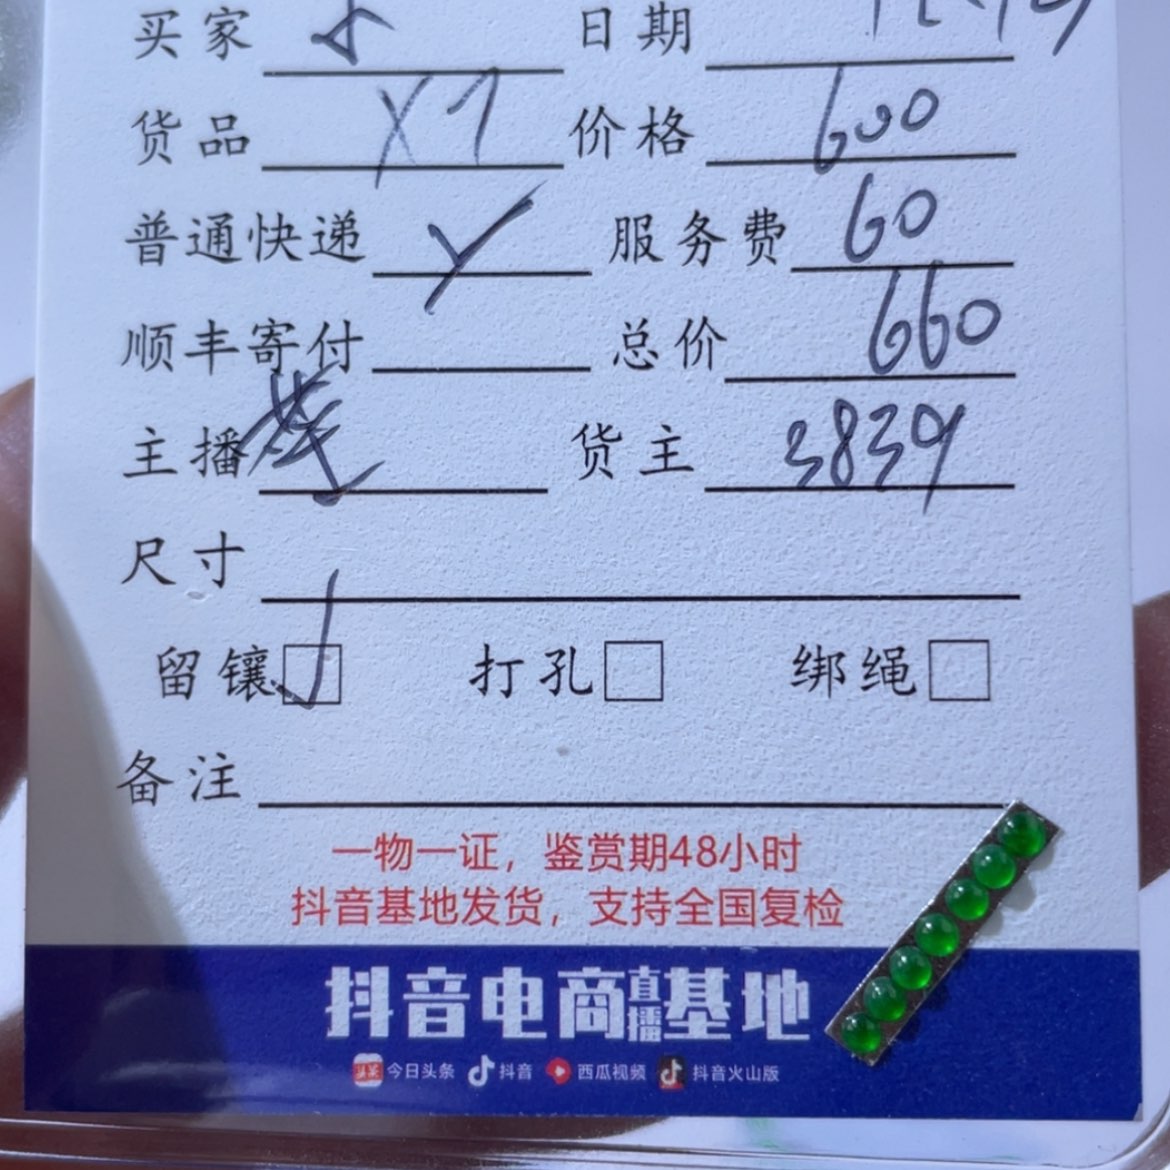 买家 日期
货品 X7 价格 600
普通快递 服务费 60
顺丰寄付 总价 660
主播 货主 3839
尺寸
留镶 打孔 绑绳
备注
一物一证，鉴赏期48小时
抖音基地发货，支持全国复检
抖音电商直播基地
头条 今日头条 抖音 西瓜视频 抖音火山版